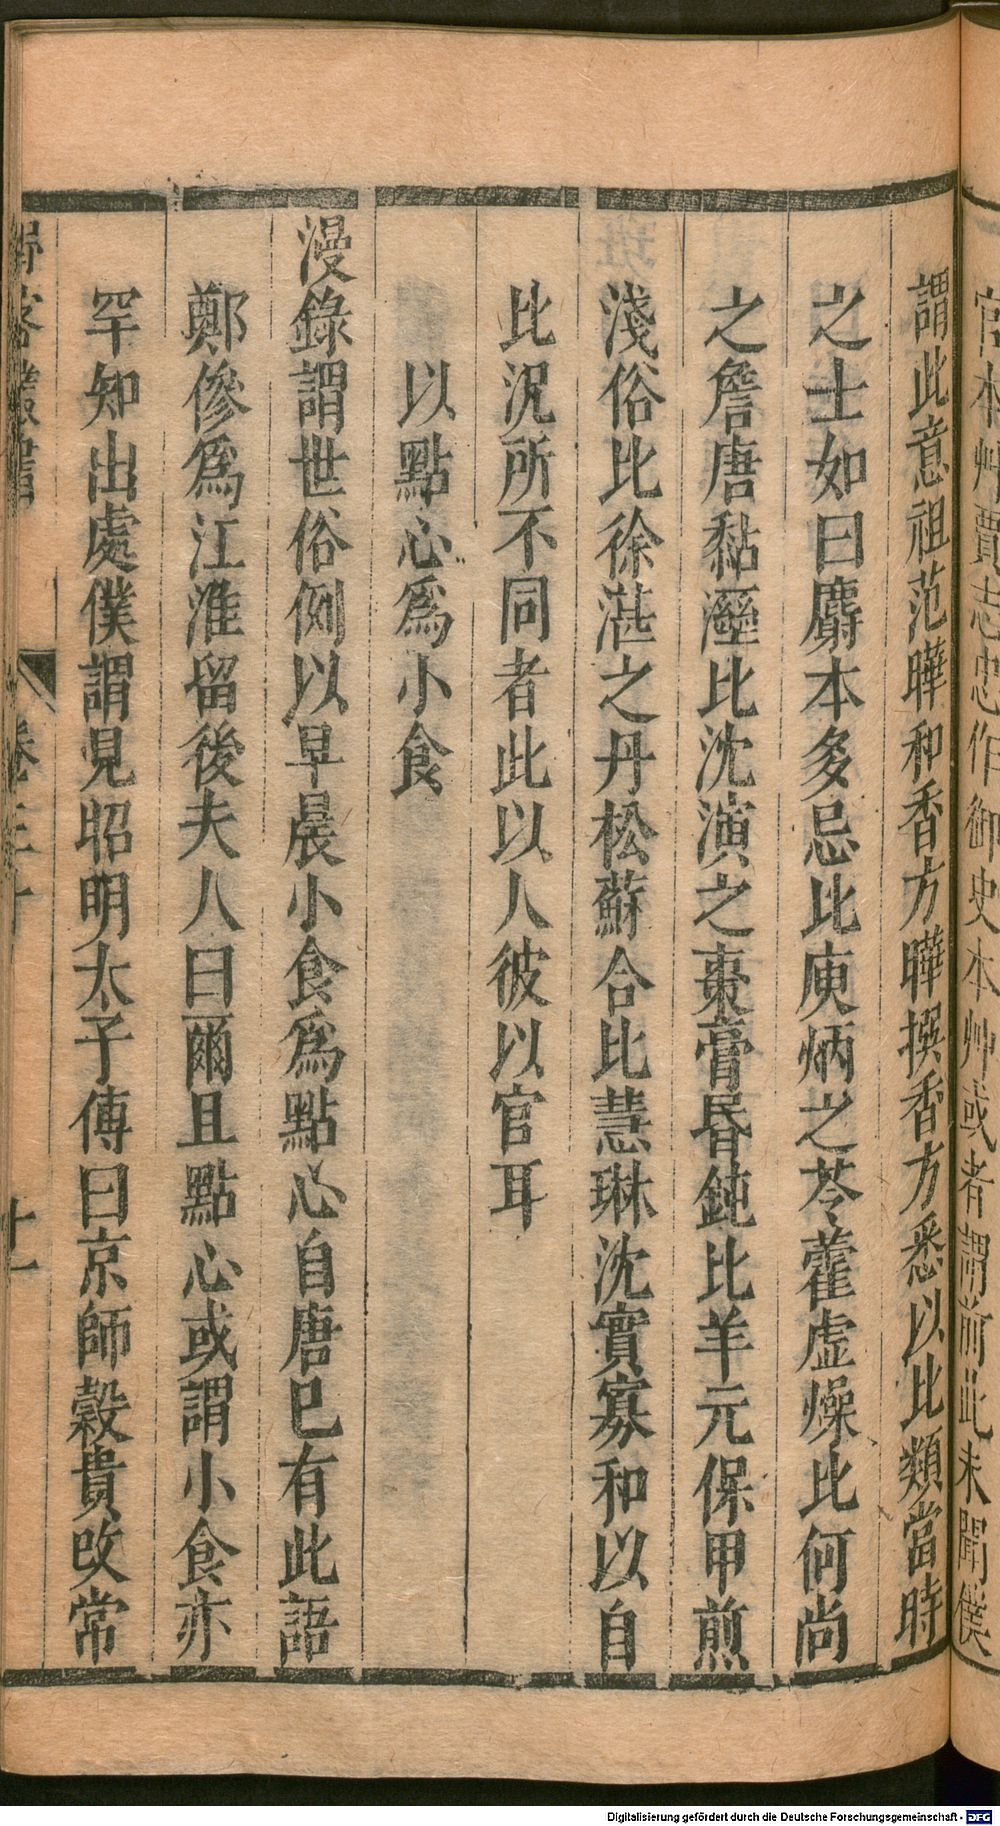 官本艸賈志忠作御史本艸或者謂前此未聞僕
謂此意祖范曄和香方曄撰香方悉以比類當時
之士如曰麝本多忌比庾炳之苓藿虛燥比何尚
之詹唐黏溼比沈演之棗膏昬鈍比羊元保甲煎
淺俗比徐湛之丹松蘇合比慧琳沈實寡和以自
比況所不同者此以人彼以官耳
以點心爲小食
漫錄謂世俗例以早晨小食爲點心自唐巳有此語
鄭傪爲江淮留後夫人曰爾且點心或謂小食亦
罕知出處僕謂見昭明太子傳曰京師穀貴改常
野客叢書
卷三十
十一
Digitalisierung gefördert durch die Deutsche Forschungsgemeinschaft - DFG